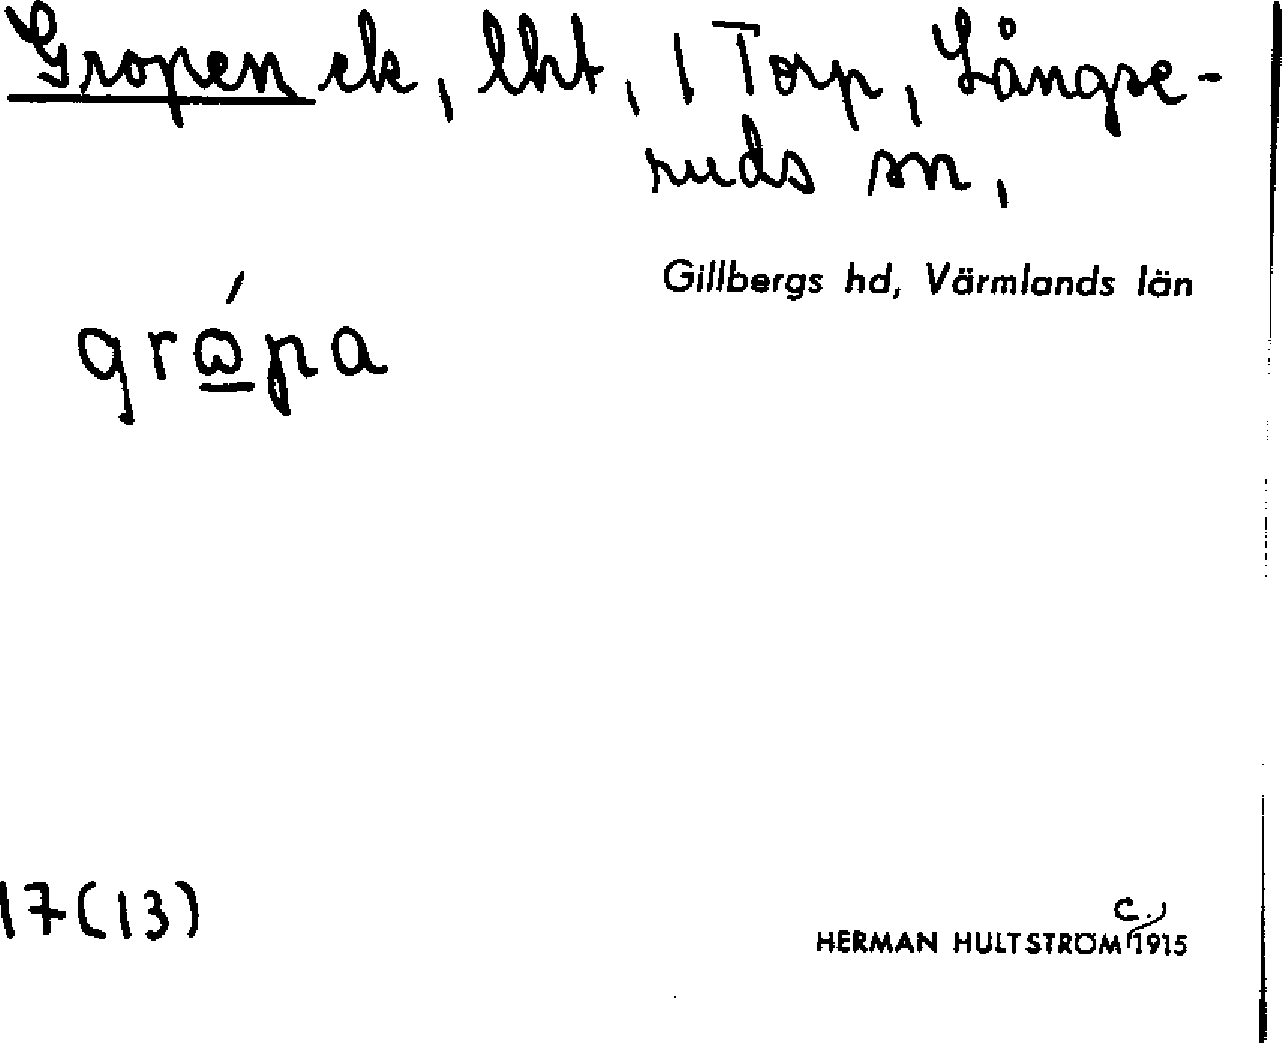 Gropen ek, lht, 1 Torp, Långse-
ruds sn,
Gillbergs hd, Värmlands län
grώ̲pa
17(13)
HERMAN HULTSTRÖM c. 1915